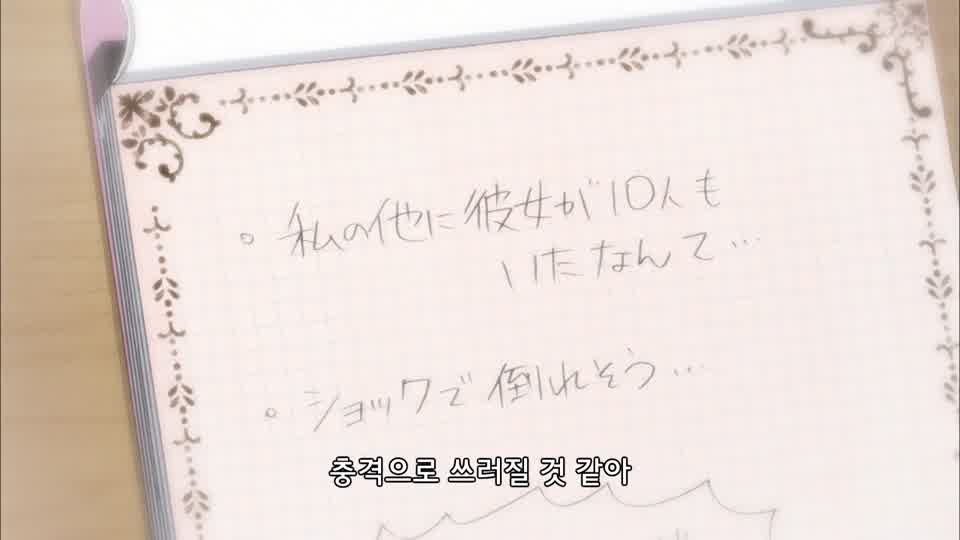 。私の他に彼女が10人も
いたなんて…
。ショックで倒れそう…
충격으로 쓰러질 것 같아